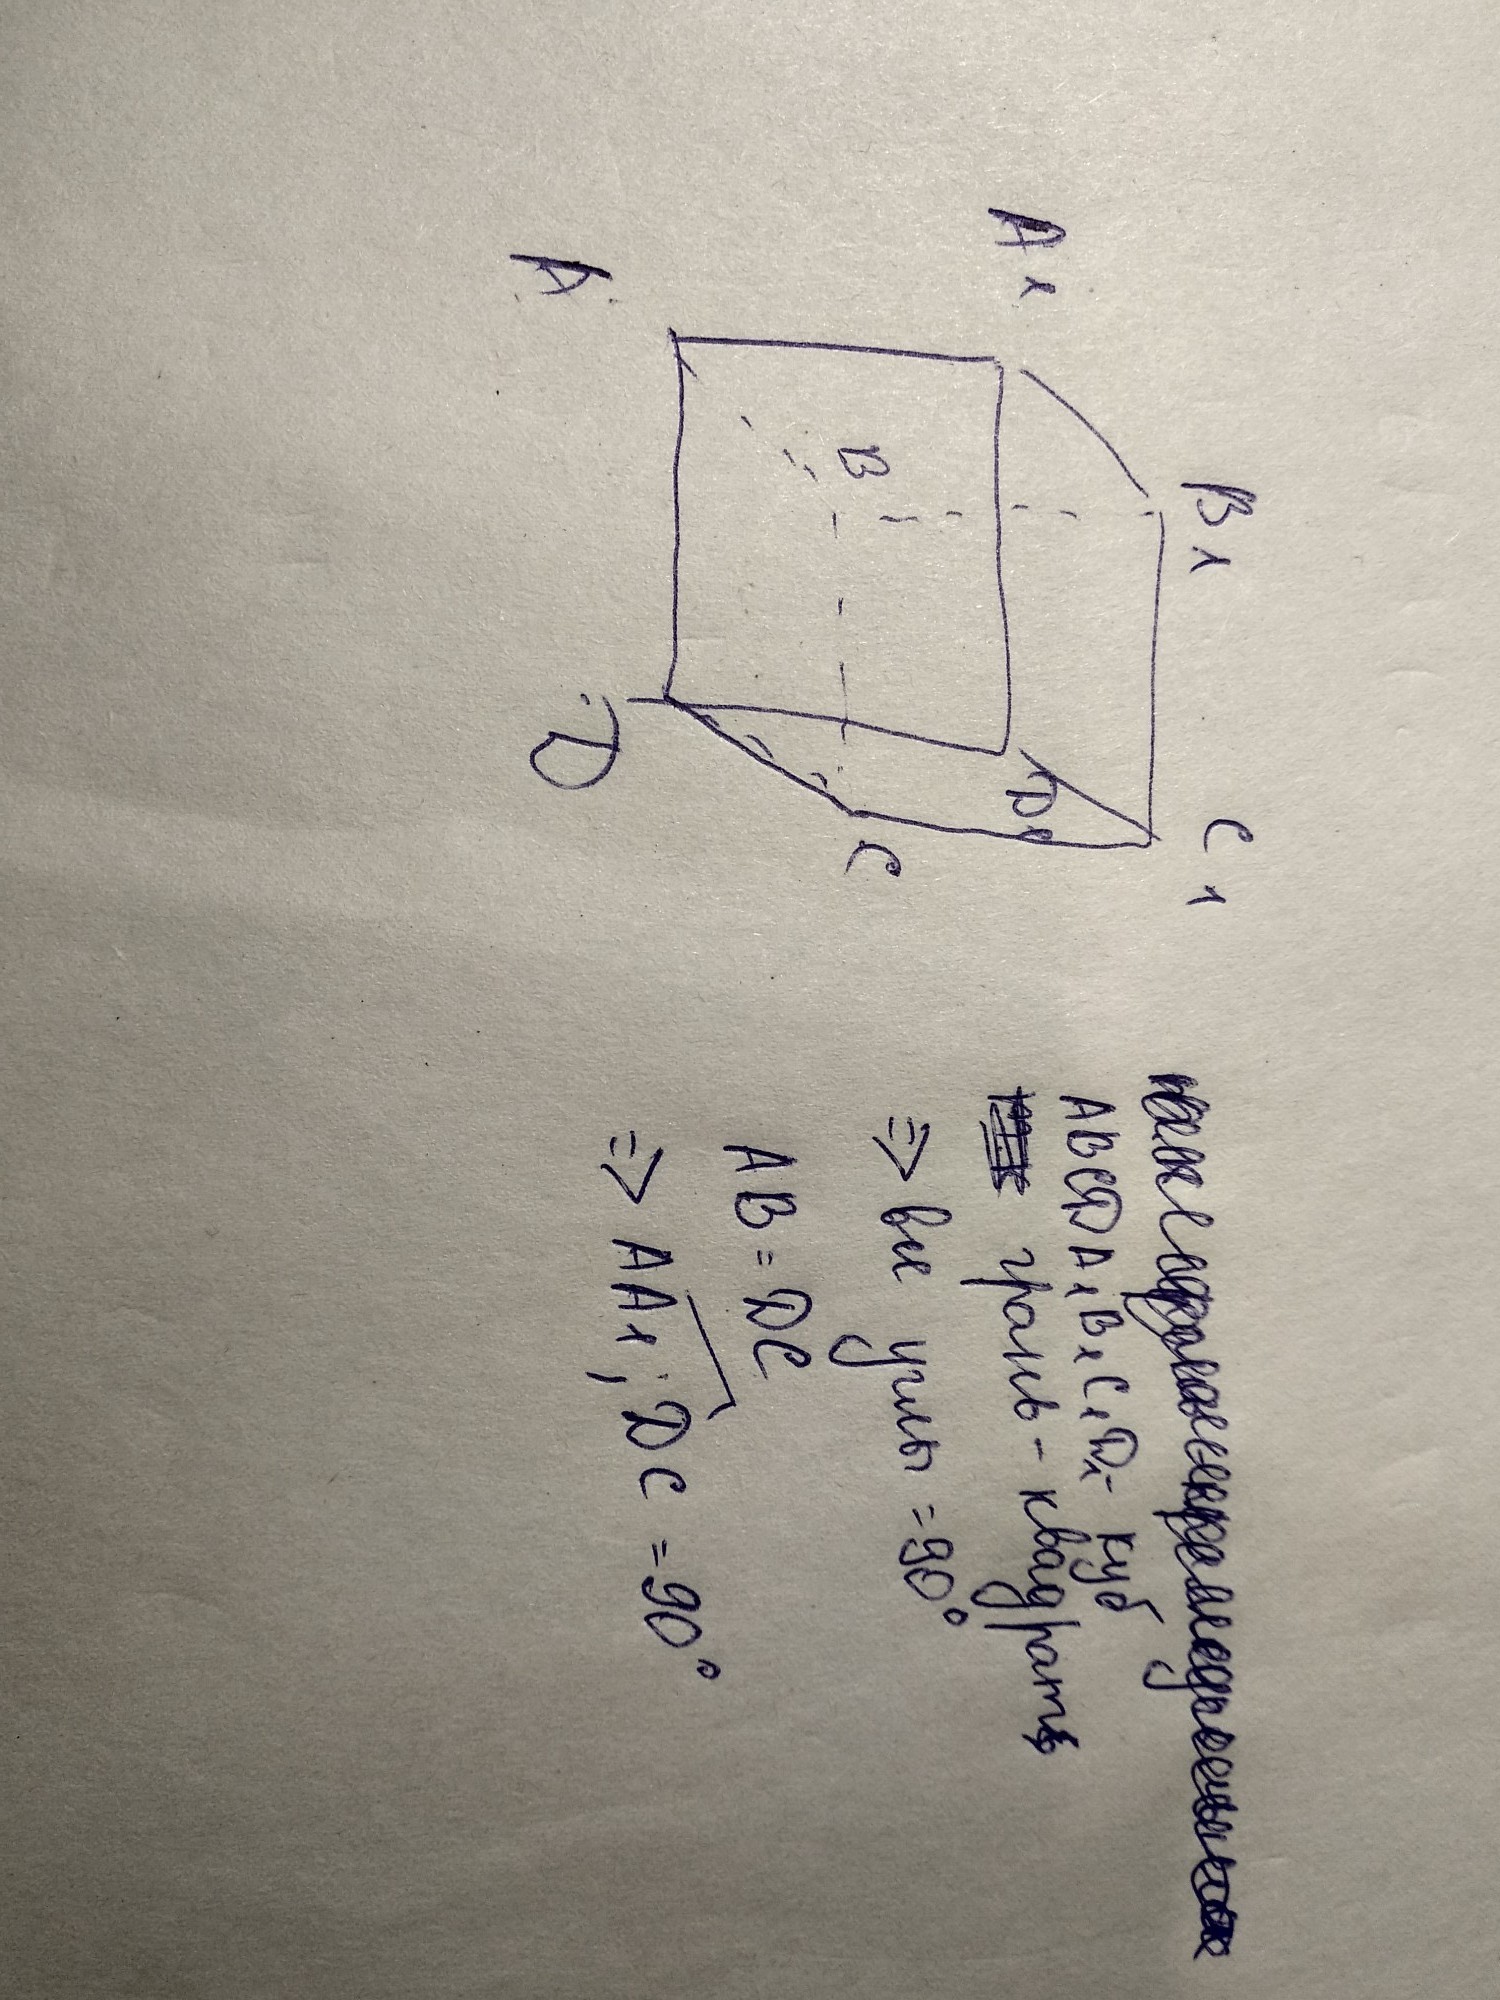 A1
B1
C1
B
D1
A
D
C
ABCDA1B1C1D1- куб
грань - квадрать
=> все углы = 90°
AB = DC
=> AA1; DC = 90°